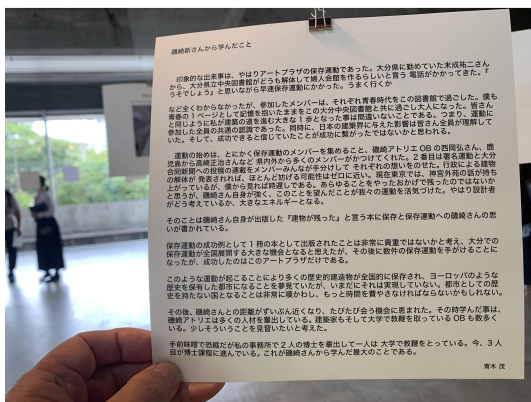 磯崎新さんから学んだこと
印象的な出来事は、やはりアートプラザの保存運動であった。大分県に勤めていた末成祐二さん
から、大分県立中央図書館がどうも解体して婦人会館を作るらしいと言う 電話がかかってきた。『
うそでしょう』と思いながら早速保存運動にかかった。うまく行くか
など全くわからなかったが、参加したメンバーは、それぞれ青春時代をこの図書館で過ごした。僕も
青春の1ページとして記憶を抱いたままをこの大分中央図書館と共に過ごし大人になった。皆さん
と同じように私が建築の道を進む大きな1歩となった事は間違いないことである。つまり、運動に
参加した全員の共通の認識であった。同時に、日本の建築界に与えた影響は皆さん全員が理解して
いた。そして、成功できると信じていたことが成功に繋がったではないかと思われる。
運動の始めは、とにかく保存運動のメンバーを集めること、磯崎アトリエOBの西岡弘さん、鹿
児島から高崎正治さんなど 県内外から多くのメンバーがかけつけてくれた。2番目は署名運動と大分
合同新聞への投稿の連載をメンバーみんなが手分けして それぞれの想いをのせた。行政による建物
の解体が 発表されれば、ほとんど妨げる可能性はゼロに近い。現在東京では、神宮外苑の話が持ち
上がっているが、僕から見れば時遅しである。あらゆることをやったおかげで残ったのではないか
と思うが、磯崎さん自身が強く、このことを望んだことが我々の運動を活気づけた。やはり設計者
がどう考えているか、大きなエネルギーとなる。
そのことは磯崎さん自身が出版した『建物が残った』と言う本に保存と保存運動への磯崎さんの思
いが書かれている。
保存運動の成功例として1冊の本として出版されたことは非常に貴重ではないかと考え、大分での
保存運動が全国展開する大きな機会となると思えたが、その後数年の保存運動を手がけることに
なったが、成功したのはこのアートプラザだけである。
このような運動が起こることにより多くの歴史的建造物が全国的に保存され、ヨーロッパのような
歴史を保有した都市になることを夢見ていたが、いまだにそれは実現していない。都市としての歴
史を持たない国となることは非常に嘆かわし、もっと時間を費やさなければならないかもしれない。
その後、磯崎さんとの距離がずいぶん近くなり、たびたび会う機会に恵まれた。その時学んだ事は、
磯崎アトリエは多くの人材を輩出している。建築家もそして大学で教鞭を取っているOBも数多く
いる。少しそういうことを見習いたいと考えた。
手前味噌で恐縮だが私の事務所で2人の博士を輩出して一人は 大学で教鞭をとっている。今、3人
目が博士課程に進んでいる。これが磯崎さんから学んだ最大のことである。
青木 茂